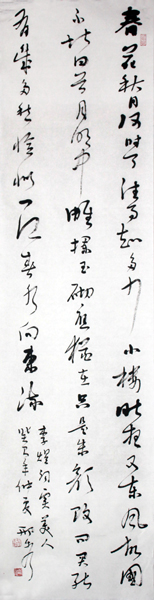 春花秋月何時了往事知多少小樓昨夜又東風故國
不堪回首月明中雕欄玉砌應猶在只是朱顏改問君能
有幾多愁恰似一江春水向東流
李煜詞虞美人
癸巳年仲夏